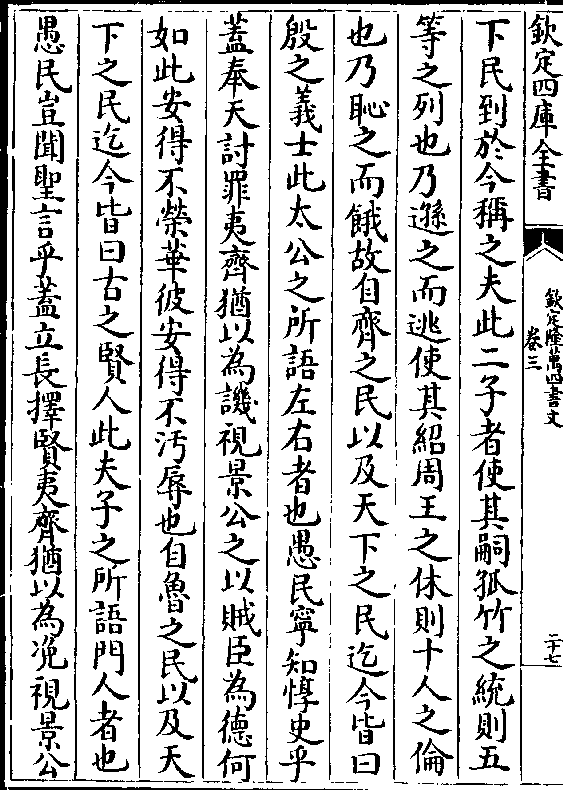 欽定四庫全書
欽定隆萬四書文
卷三
二十七
下民到於今稱之夫此二子者使其嗣孤竹之統則五
等之列也乃遜之而逃使其紹周王之休則十人之倫
也乃恥之而餓故自齊之民以及天下之民迄今皆曰
殷之義士此太公之所語左右者也愚民寧知惇史乎
蓋奉天討罪夷齊猶以為譏視景公之以賊臣為德何
如此安得不榮華彼安得不汚辱也自魯之民以及天
下之民迄今皆曰古之賢人此夫子之所語門人者也
愚民豈聞聖言乎蓋立長擇賢夷齊猶以為浼視景公